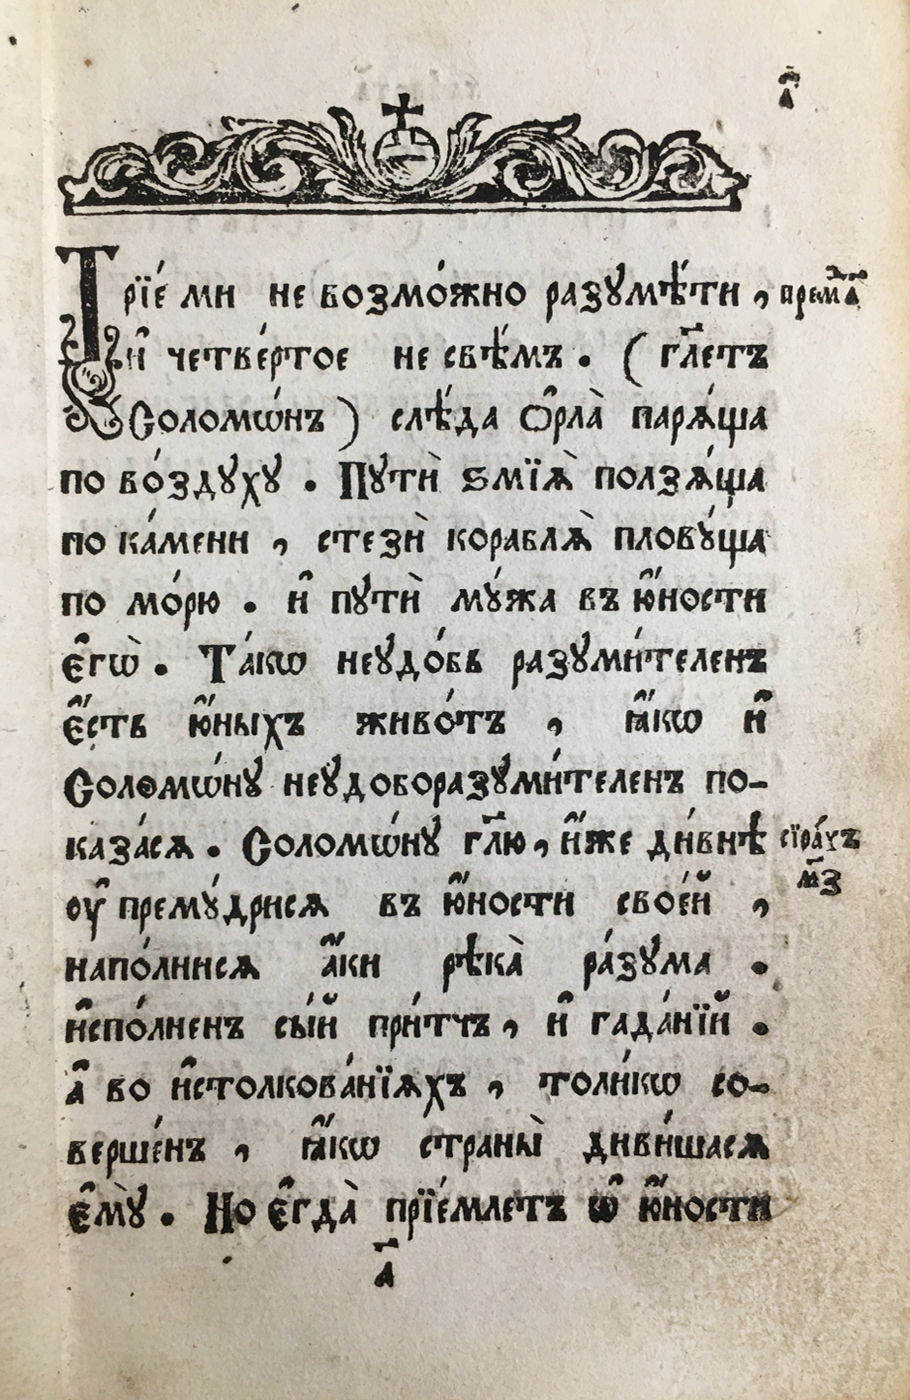 а҃
Трїе́ ми не возмо́жно разꙋмѣ́ти , прем҃ л҃
и҆ четве́ртое не свѣ́мъ . ( гл҃етъ
Соломѡ́нъ ) слѣ́да ѻ҆рла̀ паря́ща
по во́здꙋхꙋ . Пꙋтѝ ѕмїѧ̀ ползѧ́ща
по ка́мени , стезѝ кораблѧ̀ пловꙋ́ща
по мо́рю . и҆ пꙋтѝ мꙋ́жа въ ю҆́ности
є҆гѡ̀ . Та́кѡ неꙋдо́бь разꙋми́теленъ
є҆́сть ю҆́ныхъ живо́тъ , ꙗ҆́кѡ и҆
Соломѡ́нꙋ неꙋдоборазꙋми́теленъ по-
каза́сѧ . Соломѡ́нꙋ гл҃ю , и҆́же ди́внѣ сїра́хъ
оу҆премꙋ́дрисѧ въ ю҆́ности свое́й , м҃з
напо́лнисѧ а҆́ки рѣка̀ ра́зꙋма .
и҆спо́лненъ сы́й при́тчъ , и҆ гада́нїй .
а҆ во и҆столкова́нїѧхъ , толи́кѡ со-
верше́нъ , ꙗ҆́кѡ страны̀ диви́шасѧ
є҆мꙋ̀ . Но є҆гда̀ прїе́млетъ ѿ ю҆́ности
а҃